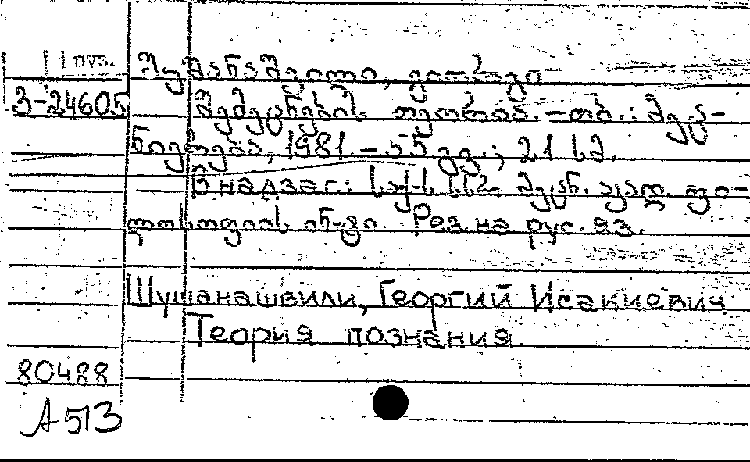 შუშანაშვილი, გიორგი
3-24605
შემეცნების თეორია. – თბ.: მეცნიერება, 1981. – 55 გვ.; 21 სმ.
В надзаг.: საქ. სსრ მეცნ. აკად. ფილოსოფიის ინ-ტი. Рез. на рус. яз.
Шушанашвили, Георгий Исакиевич
Теория познания.
80488
А 513